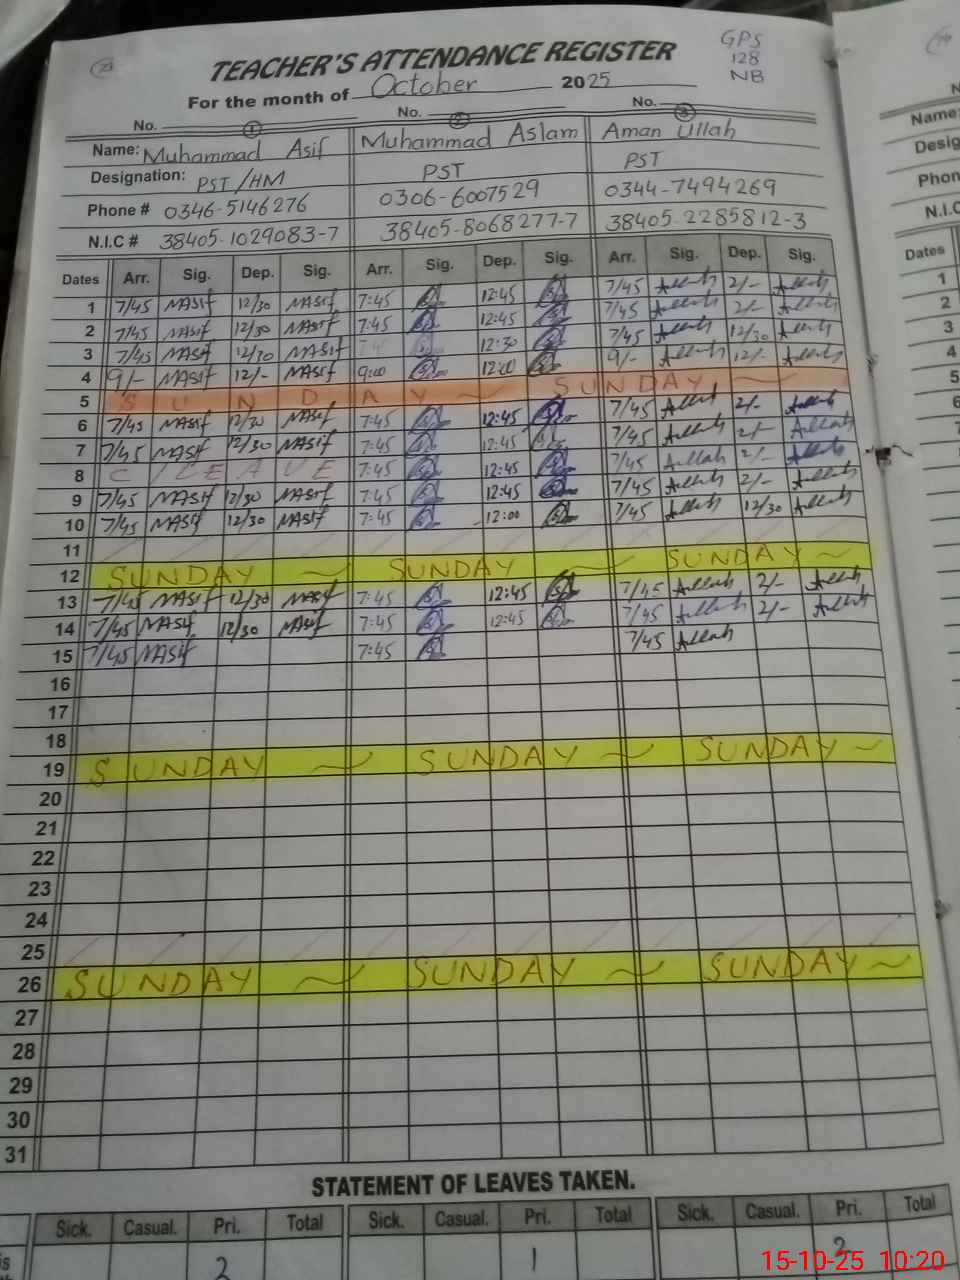 23
TEACHER'S ATTENDANCE REGISTER
GPS
128
NB
For the month of October 2025
No. 1 No. 2 No. 3
Name: Muhammad Asif Muhammad Aslam Aman Ullah
Designation: PST/HM PST PST
Phone # 0346-5146276 0306-6007529 0344-7494269
N.I.C # 38405-1029083-7 38405-8068277-7 38405-2285812-3
Dates Arr. Sig. Dep. Sig. Arr. Sig. Dep. Sig. Arr. Sig. Dep. Sig.
1 7/45 MASif 12/30 MASif 7:45 12:45 7/45 Allah 2/- Allah
2 7/45 MASif 12/30 MASif 7:45 12:45 7/45 Allah 2/- Allah
3 7/45 MASif 12/30 MASif 12:30 7/45 Allah 12/30 Allah
4 9/- MASif 12/- MASif 9:00 12:00 9/- Allah 12/- Allah
5 SUNDAY SUNDAY
6 7/45 MASif 12/30 MASif 7:45 12:45 7/45 Allah 2/- Allah
7 7/45 MASif 12/30 MASif 7:45 12:45 7/45 Allah 2/- Allah
8 C/LEAVE 7:45 12:45 7/45 Allah 2/- Allah
9 7/45 MASif 12/30 MASif 7:45 12:45 7/45 Allah 2/- Allah
10 7/45 MASif 12/30 MASif 7:45 12:00 7/45 Allah 12/30 Allah
11
12 SUNDAY SUNDAY SUNDAY
13 7/45 MASif 12/30 MASif 7:45 12:45 7/45 Allah 2/- Allah
14 7/45 MASif 12/30 MASif 7:45 12:45 7/45 Allah 2/- Allah
15 7/45 MASif 7:45 7/45 Allah
16
17
18
19 SUNDAY SUNDAY SUNDAY
20
21
22
23
24
25
26 SUNDAY SUNDAY SUNDAY
27
28
29
30
31
STATEMENT OF LEAVES TAKEN.
Sick. Casual. Pri. Total Sick. Casual. Pri. Total Sick. Casual. Pri. Total
2 1 2
Name:
Desig
Phon
N.I.C
Dates
1
2
3
4
5
6
15-10-25 10:20